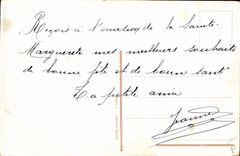 Reçois à l'occasion de la Sainte.
Marguerite mes meilleurs souhaits
de bonne fête et de bonne santé
Ta petite amie
Jeanne